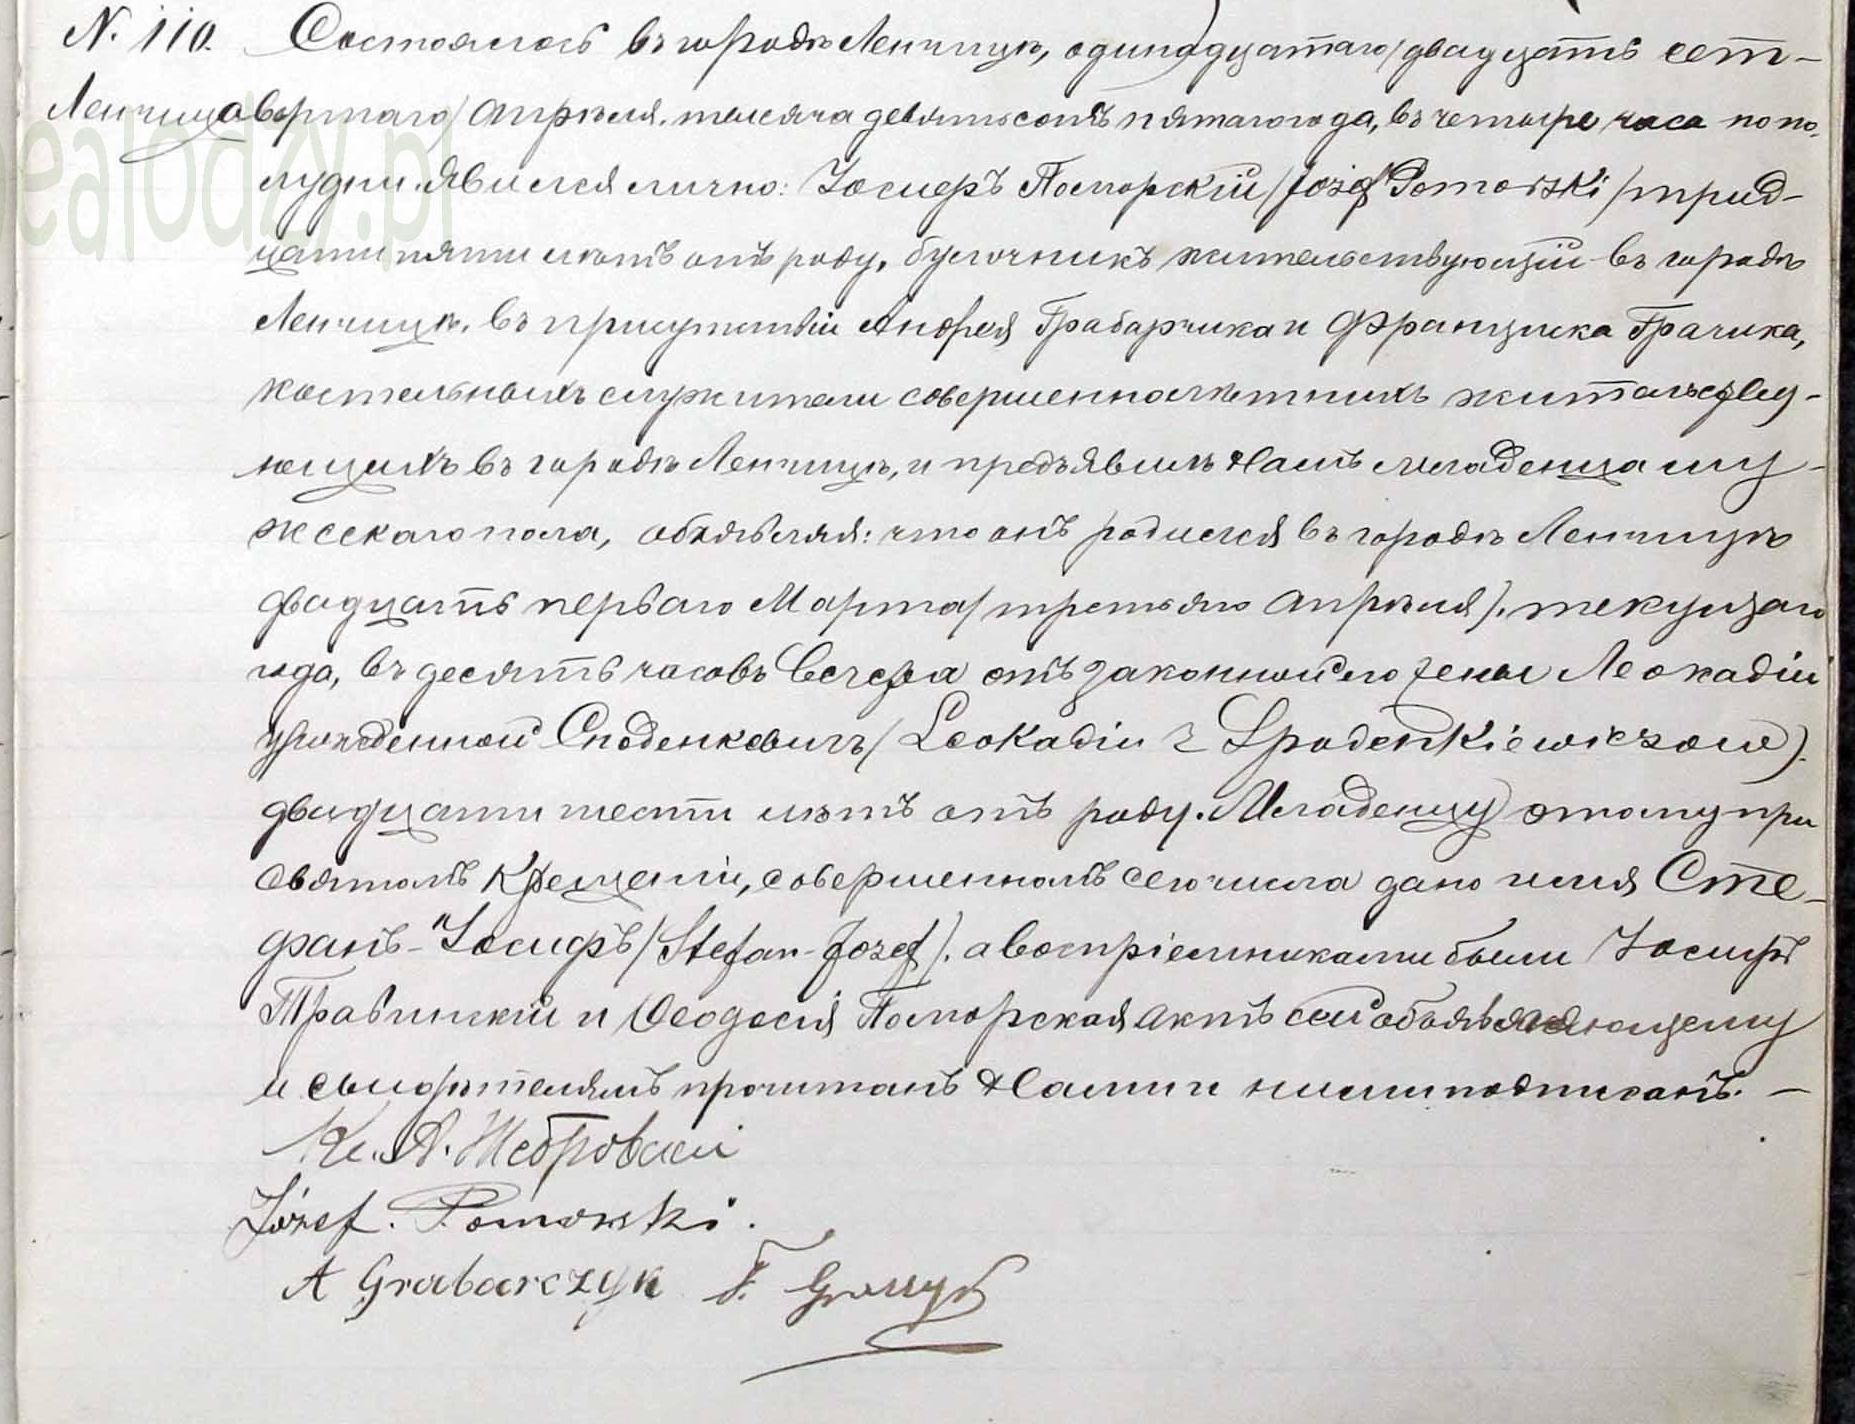 N. 110. Состоялось въ городѣ Ленчицѣ, одинадцатаго/двадцать чет-
Ленчица вертаго/Апрѣля, тысяча девятьсотъ пятаго года, въ четыре часа по по-
лудни. Явился лично: Іосифъ Поморскій /Józef Pomorski/ трид-
цати пяти лѣтъ отъ роду, булочникъ жительствующій въ городѣ
Ленчицѣ, въ присутствіи Андрея Грабарчика и Францишка Грачика,
костельныхъ служители совершеннолѣтнихъ жительству-
ющихъ въ городѣ Ленчицѣ, и предъявилъ Намъ младенца му-
жескаго пола, объявляя: что онъ родился въ городѣ Ленчицѣ
двадцать перваго Марта /третьяго Апрѣля/. текущаго
года, въ десять часовъ вечера отъ законной его жены Леокадіи
урожденной Споденкевичъ /Leokadii z Spodenkiewiczow).
двадцати шести лѣтъ отъ роду. Младенцу этому при
Святомъ Крещеніи, совершенномъ сего числа дано имя Сте-
фанъ-Іосифъ /Stefan-Józef/. а воспріемниками были Іосифъ
Травинскій и Ѳеодосія Поморская Актъ сей объявляющему
и свидѣтелямъ прочитанъ Нами и ними подписанъ. —
Кс. А. Жебровскі
Józef. Pomorski.
A Grabarczyk F. Graczyk
ealodzy.pl